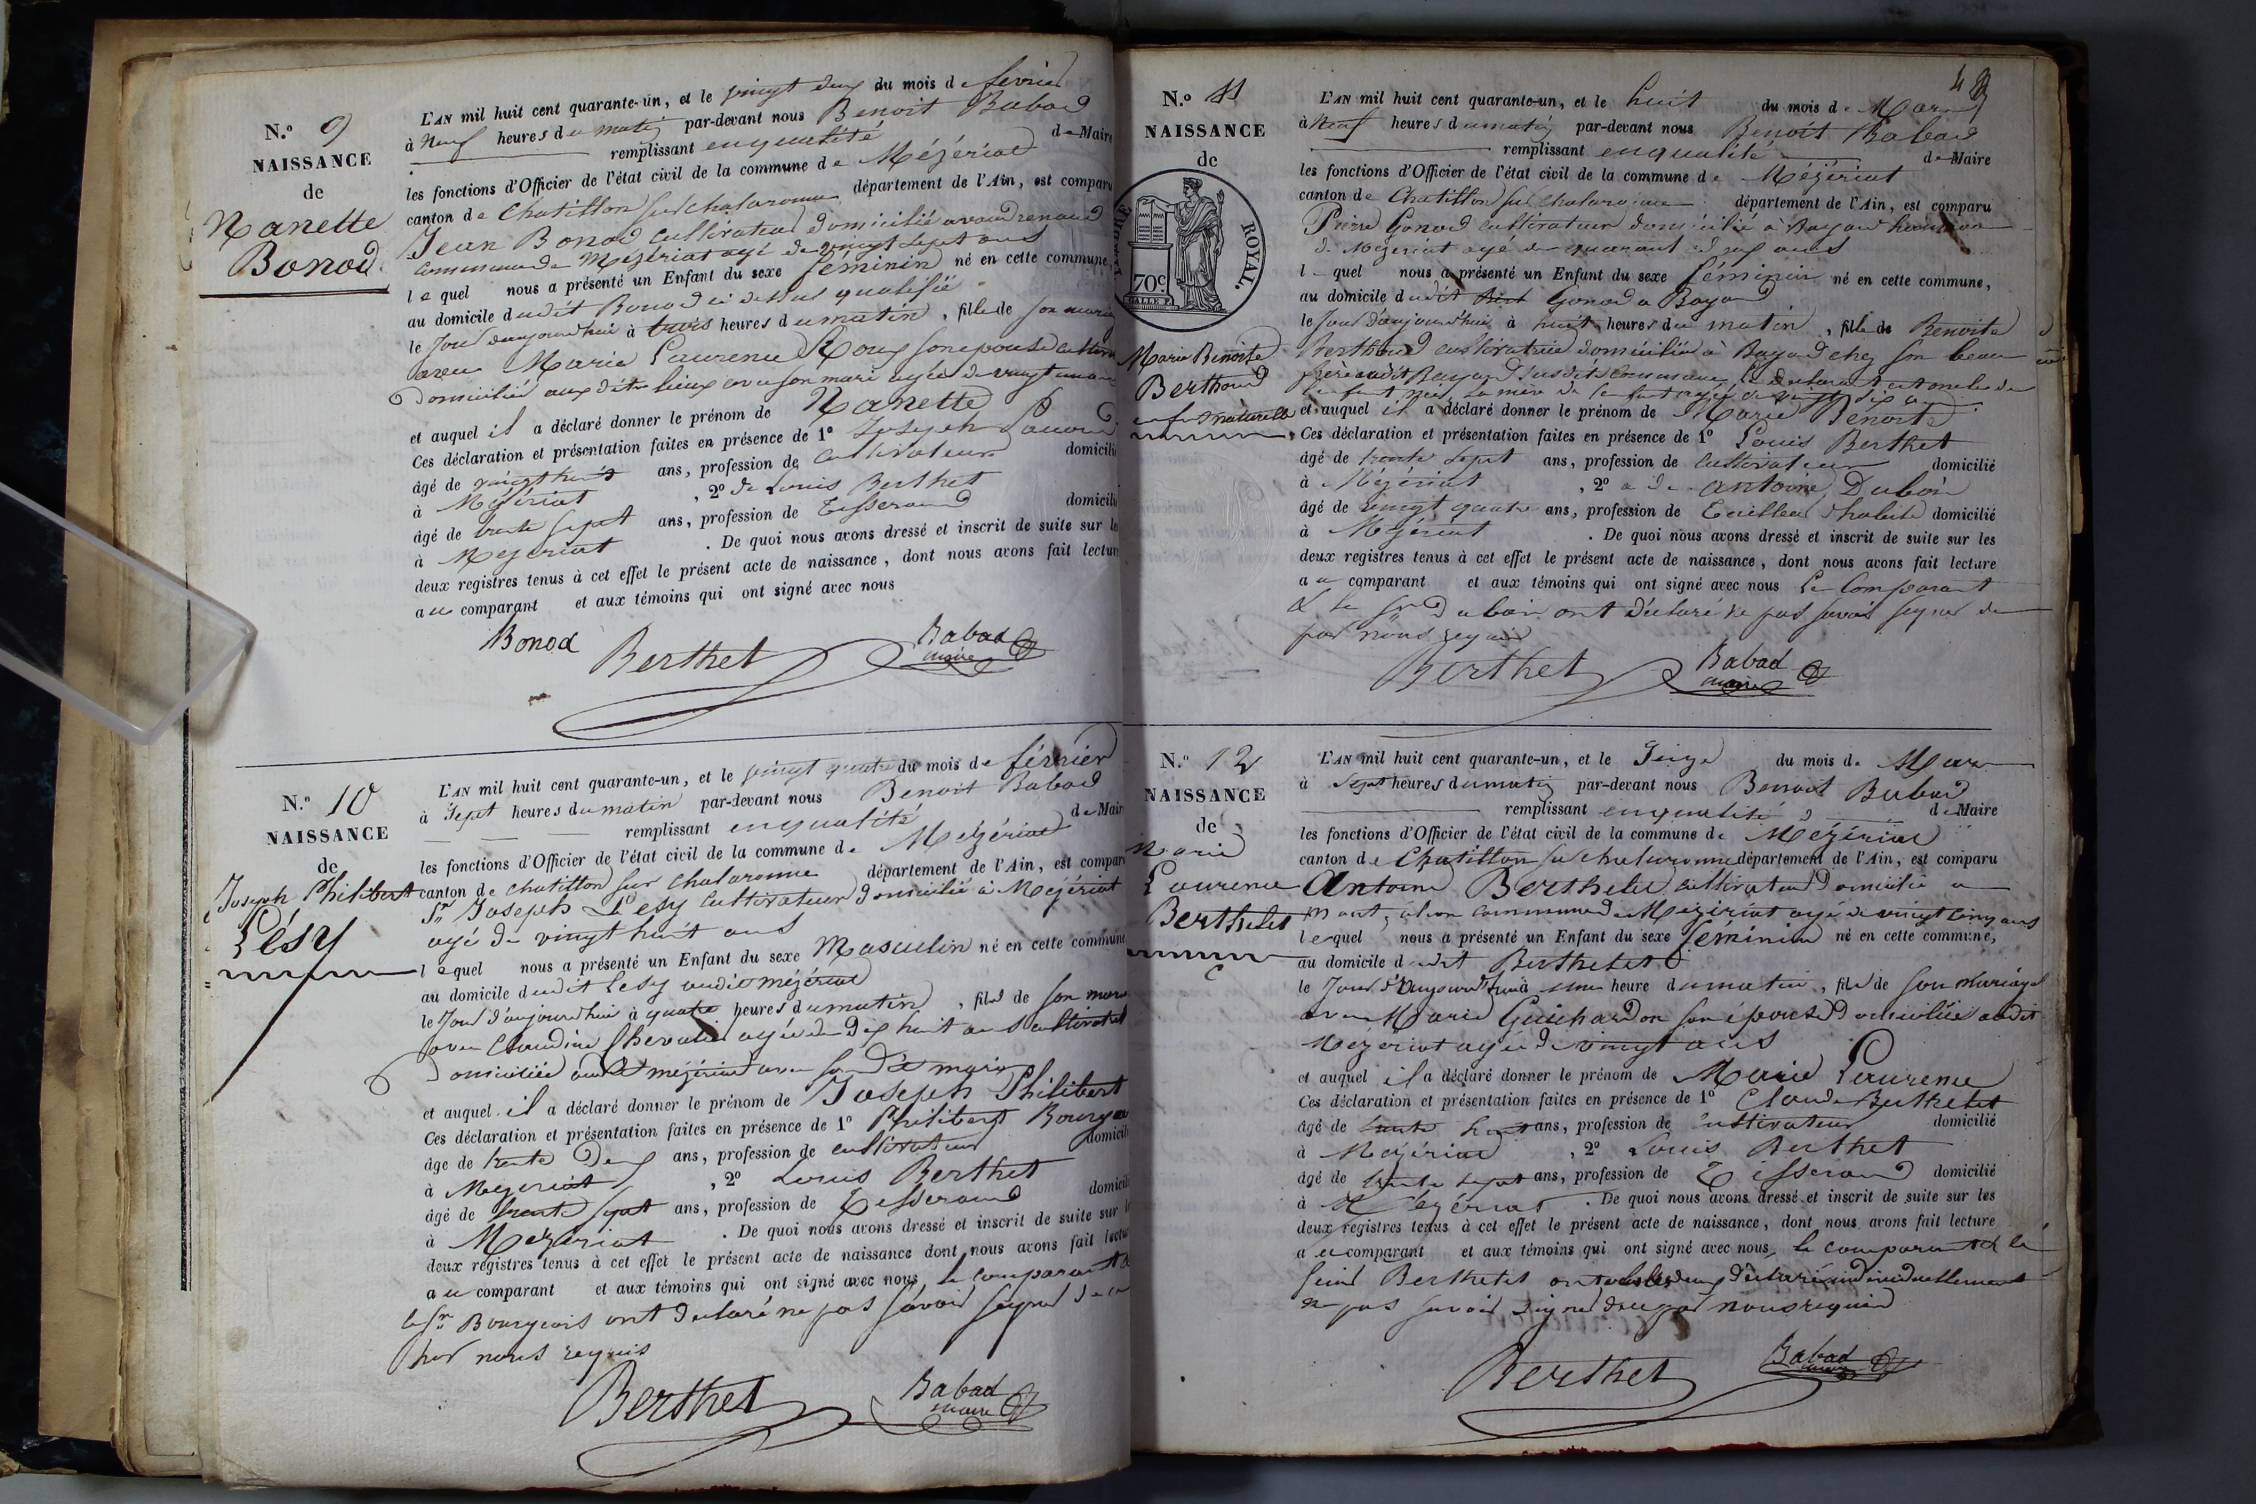 N.o 9
NAISSANCE
de
Nanette
Bonod
L'AN mil huit cent quarante-un, et le vingt deux du mois de février
à Neuf heures du matin par-devant nous Benoit Babad
remplissant en qualité de Maire
les fonctions d'Officier de l'état civil de la commune de Mézériat
canton de Chatillon sur Chalaronne département de l'Ain, est comparu
Jean Bonod cultivateur domicilié
commune de Mézériat agé de vingt sept ans
lequel nous a présenté un Enfant du sexe féminin né en cette commune,
au domicile dudit Bonod ci dessus qualifié
le Jour d'aujourd'hui à trois heures du matin, fille de son mariage
avec Marie Laurence Roux son epouse
domiciliée aux dits lieux avec son mari agée de vingt
et auquel il a déclaré donner le prénom de Nanette
Ces déclaration et présentation faites en présence de 1o Joseph
âgé de vingt huit ans, profession de cultivateur domicilié
à Mézériat, 2o de Louis Berthet
âgé de trente sept ans, profession de Tisserand domicilié
à Mézériat. De quoi nous avons dressé et inscrit de suite sur les
deux registres tenus à cet effet le présent acte de naissance, dont nous avons fait lecture
au comparant et aux témoins qui ont signé avec nous
Bonod Berthet Babad
maire
N.o 10
NAISSANCE
de
Joseph Philibert
Lésy
L'AN mil huit cent quarante-un, et le vingt quatre du mois de février
à Sept heures du matin par-devant nous Benoit Babad
remplissant en qualité de Maire
les fonctions d'Officier de l'état civil de la commune de Mézériat
canton de Chatillon sur Chalaronne département de l'Ain, est comparu
Sr Joseph Lésy cultivateur domicilié à Mézériat
agé de vingt huit ans
lequel nous a présenté un Enfant du sexe Masculin né en cette commune
au domicile dudit Lésy audit mézériat
le Jour d'aujourd'hui à quatre heures du matin, fils de son mari
avec Claudine Chevalier agée de dix huit ans
domiciliée audit mézériat avec son dit mari
et auquel il a déclaré donner le prénom de Joseph Philibert
Ces déclaration et présentation faites en présence de 1o Philibert Bourgeois
âge de trente deux ans, profession de cultivateur domicilié
à Mézériat, 2o Louis Berthet
âgé de trente sept ans, profession de Tisserand domicilié
à Mézériat. De quoi nous avons dressé et inscrit de suite sur les
deux registres tenus à cet effet le présent acte de naissance dont nous avons fait lecture
au comparant et aux témoins qui ont signé avec nous, le comparant &
le Sr Bourgeois ont déclaré ne pas savoir signer de ce
par nous requis
Berthet Babad
maire
N.o 11
NAISSANCE
de
TIMBRE ROYAL.
70c
Marie Benoite
Berthoud
enfant naturelle
L'AN mil huit cent quarante-un, et le huit du mois de Mars
à Neuf heures du matin par-devant nous Benoit Babad
remplissant en qualité de Maire
les fonctions d'Officier de l'état civil de la commune de Mézériat
canton de Chatillon sur Chalaronne département de l'Ain, est comparu
Pierre Gonod cultivateur domicilié à Bayard
de Mézériat agé de quarante ans
lequel nous a présenté un Enfant du sexe féminin né en cette commune,
au domicile dudit Gonod a Bayard
le Jour d'aujourd'hui à huit heures du matin, fille de Benoite
Berthoud cultivatrice domiciliée à Bayard chez son beau
frere audit Bayard susdite commune
et auquel il a déclaré donner le prénom de Marie Benoite
Ces déclaration et présentation faites en présence de 1o Louis Berthet
âgé de trente sept ans, profession de cultivateur domicilié
à Mézériat, 2o de Antoine Duboin
âgé de vingt quatre ans, profession de Tailleur d'habits domicilié
à Mézériat. De quoi nous avons dressé et inscrit de suite sur les
deux registres tenus à cet effet le présent acte de naissance, dont nous avons fait lecture
au comparant et aux témoins qui ont signé avec nous Le Comparant
& le Sr Duboin ont déclaré ne pas savoir signer de
par nous requis
Berthet Babad
maire
N.o 12
NAISSANCE
de
Marie
Laurence
Berthelet
L'AN mil huit cent quarante-un, et le Seize du mois de Mars
à Sept heures du matin par-devant nous Benoit Babad
remplissant en qualité de Maire
les fonctions d'Officier de l'état civil de la commune de Mézériat
canton de Chatillon sur Chalaronne département de l'Ain, est comparu
Antoine Berthelet cultivateur domicilié a
commune de Mézériat agé de vingt cinq ans
lequel nous a présenté un Enfant du sexe féminin né en cette commune,
au domicile dudit Berthelet
le Jour d'aujourd'hui à une heure du matin, fille de son mariage
avec Marie Guichardon son épouse domiciliée audit
Mézériat agée de vingt ans
et auquel il a déclaré donner le prénom de Marie Laurence
Ces déclaration et présentation faites en présence de 1o Claude Berthelet
âgé de trente huit ans, profession de Cultivateur domicilié
à Mézériat, 2o Louis Berthet
âgé de trente sept ans, profession de Tisserand domicilié
à Mézériat. De quoi nous avons dressé et inscrit de suite sur les
deux registres tenus à cet effet le présent acte de naissance, dont nous avons fait lecture
au comparant et aux témoins qui ont signé avec nous, le comparant & le
Berthelet ont déclaré individuellement
ne pas savoir signer de ce par nous requis
Berthet Babad
maire